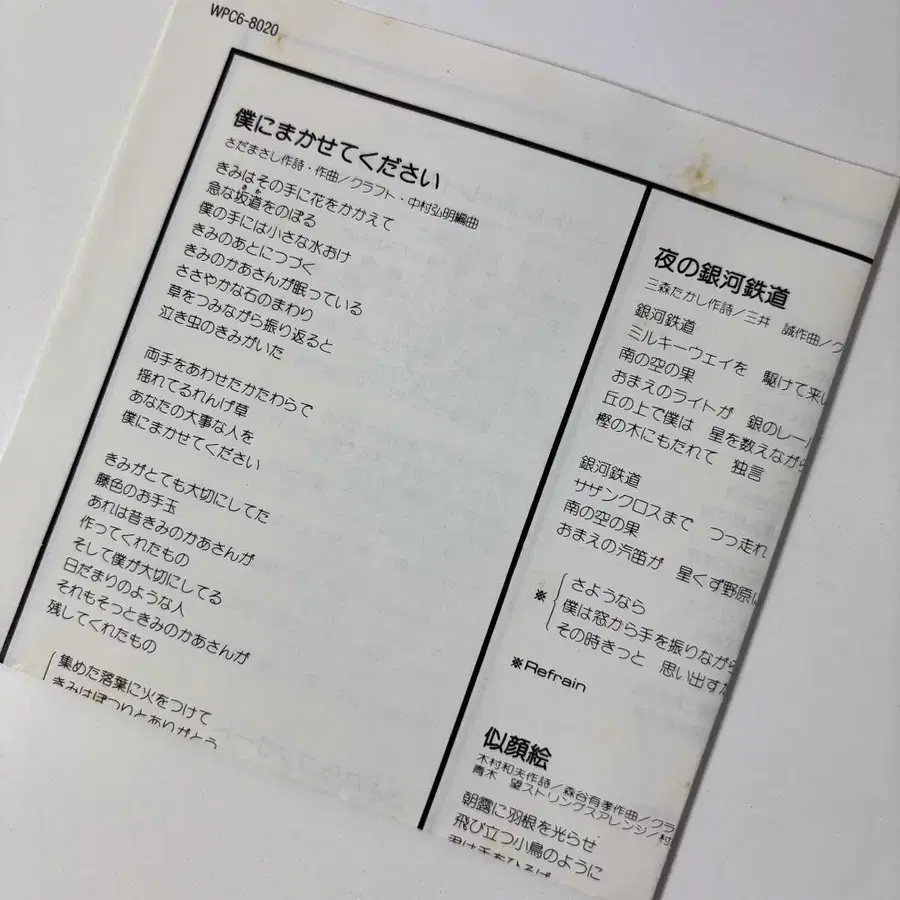 WPC6-8020
僕にまかせてください
さだまさし作詩・作曲／クラフト・中村弘明編曲
きみはその手に花をかかえて
急な坂道をのぼる
僕の手には小さな水おけ
きみのあとにつづく
きみのかあさんが眠っている
ささやかな石のまわり
草をつみながら振り返ると
泣き虫のきみがいた
両手をあわせたかたわらで
揺れてるれんげ草
あなたの大事な人を
僕にまかせてください
きみがとても大切にしてた
藤色のお手玉
あれは昔きみのかあさんが
作ってくれたもの
そして僕が大切にしてる
日だまりのような人
それもそっときみのかあさんが
残してくれたもの
集めた落葉に火をつけて
きみはぽつりとありがとう
夜の銀河鉄道
三森たかし作詩／三井 誠作曲／ク
銀河鉄道
ミルキーウェイを 駆けて来い
南の空の果
おまえのライトが 銀のレール
丘の上で僕は 星を数えながら
樫の木にもたれて 独言
銀河鉄道
サザンクロスまで つっ走れ
南の空の果
おまえの汽笛が 星くず野原に
※ さようなら
僕は窓から手を振りながら
その時きっと 思い出すだ
※Refrain
似顔絵
木村和夫作詩／森谷有孝作曲／クラ
青木 望ストリングスアレンジ／村
朝露に羽根を光らせ
飛び立つ小鳥のように
君は手をひろげ